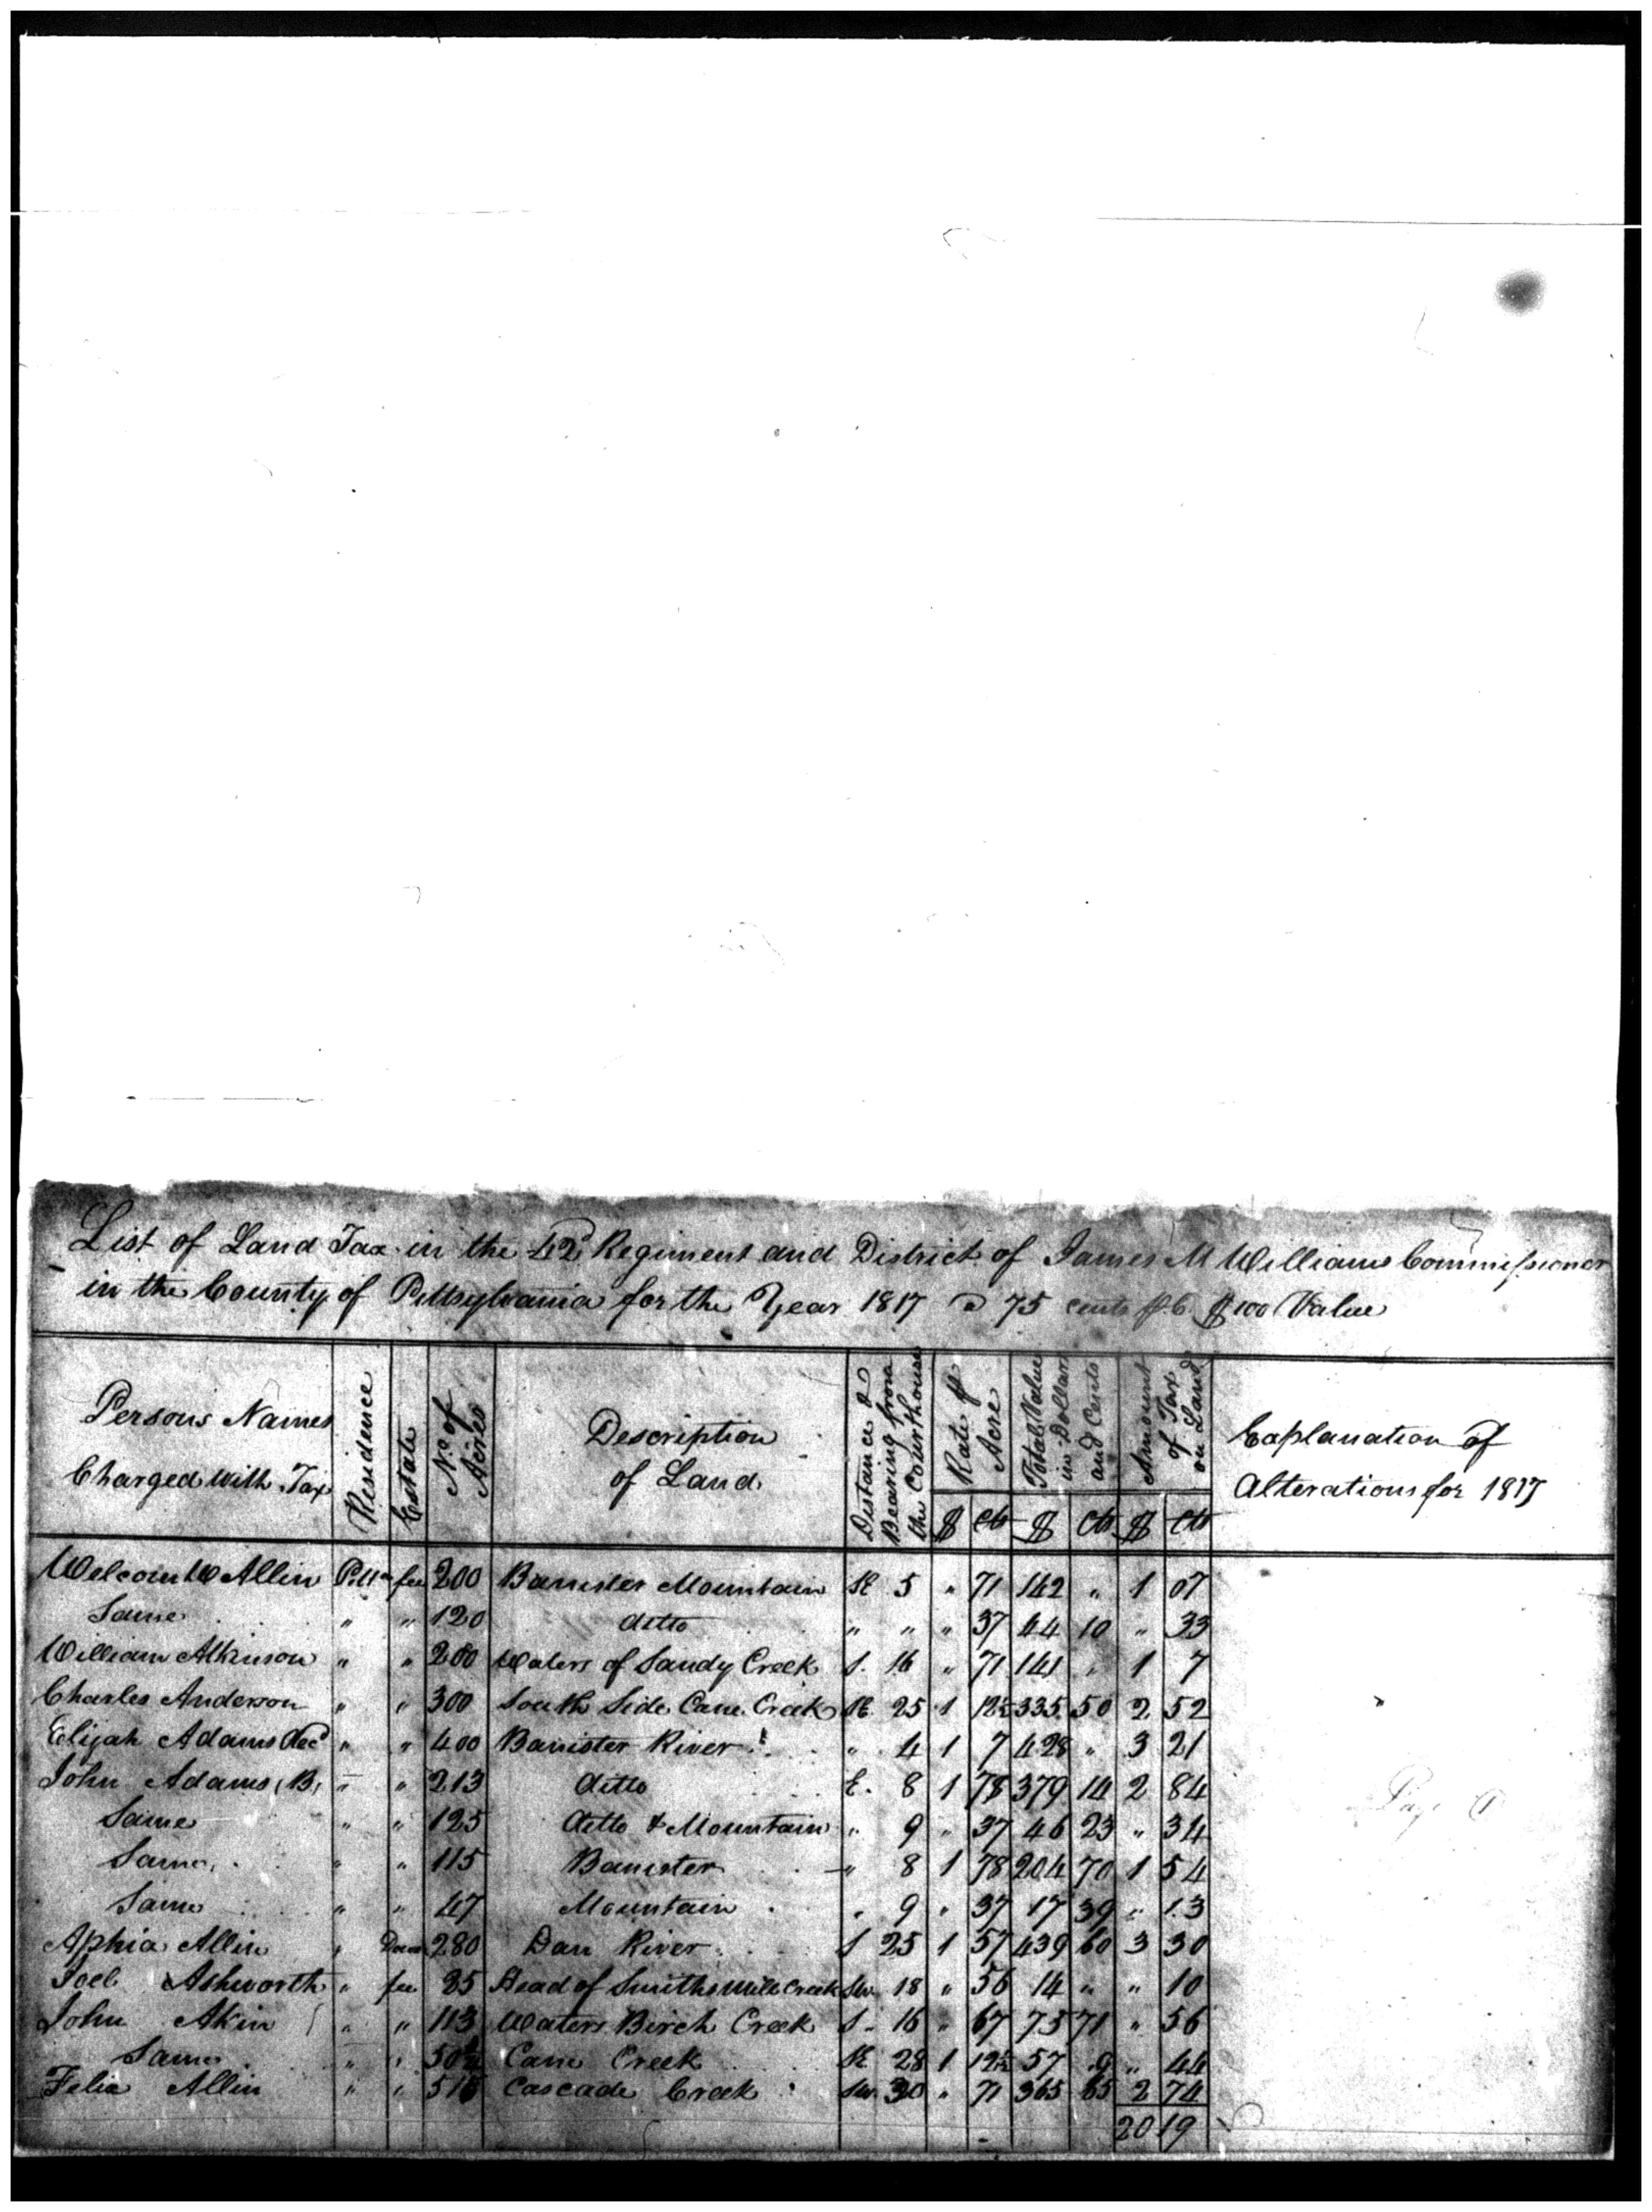 List of Land Tax in the 42d Regiment and District of James M Williams Commissioner
in the County of Pittsylvania for the Year 1817 @ 75 cents $100 Value
Persons Names Charged with Tax
Residence
Estate
No. of Acres
Description of Land
Distance & Bearing from the Courthouse
Rate pr Acre
Total Value in Dollars and Cents
Amount of Tax on Land
Explanation of Alterations for 1817
$ Cts $ Cts $ Cts
Welcom W Allin Pitta fee 200 Banister Mountain 5 " 71 142 " 1 07
Same " " 120 ditto " " " 37 44 10 " 33
William Atkinson " " 200 Waters of Sandy Creek S. 16 " 71 141 " 1 7
Charles Anderson " " 300 South Side Cane Creek SE 25 1 12½ 335 50 2 52
Elijah Adams decd " " 400 Banister River " 4 1 7 428 " 3 21
John Adams (B) " " 213 ditto E. 8 1 78 379 14 2 84
Same " " 125 ditto & Mountain " 9 " 37 46 23 " 34
Same " " 115 Banister " 8 1 78 204 70 1 54
Same " " 47 Mountain " 9 " 37 17 39 " 13
Aphia Allin " Dower 280 Dan River S 25 1 57 439 60 3 30
Joel Ashworth " fee 25 Head of Smiths Mill Creek SW. 18 " 56 14 " " 10
John Akin " " 113 Waters Birch Creek S 16 " 67 75 71 " 56
Same " " 50¾ Cane Creek SE 28 1 12½ 57 9 " 44
Felix Allin " " 515 Cascade Creek SW. 30 " 71 365 65 2 74
20 19
Page